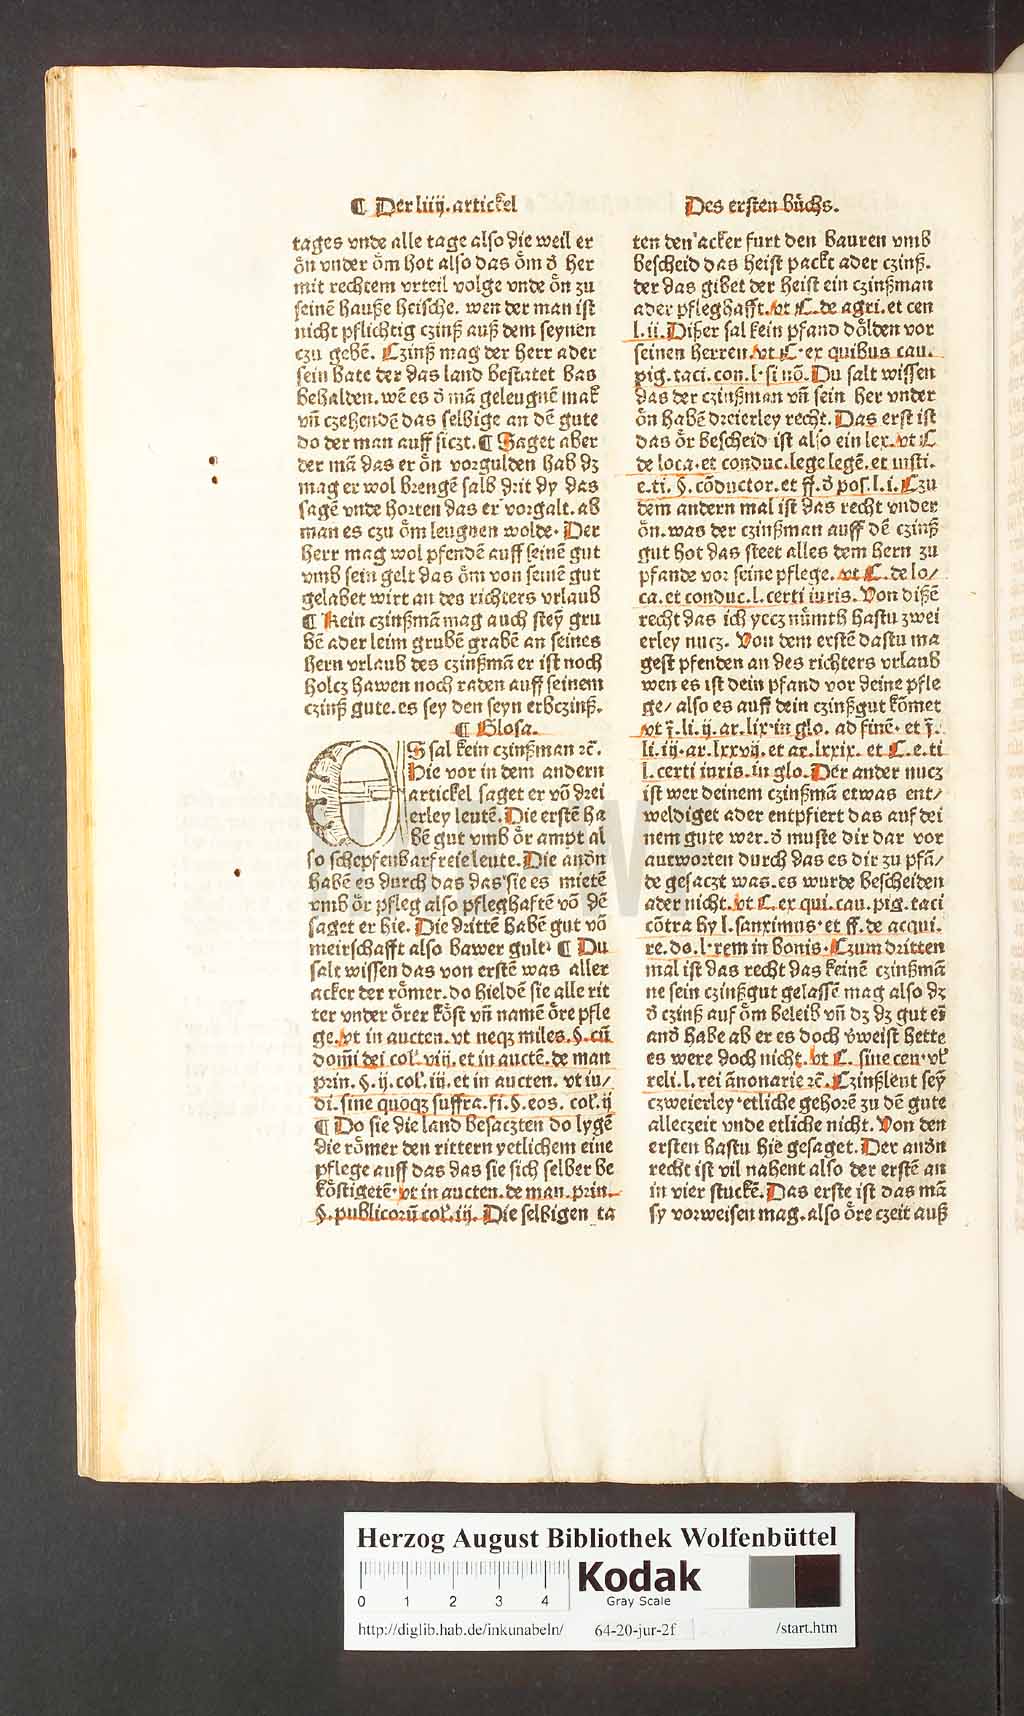 ¶ Der liiij. artickel
Des ersten bůchs.
tages vnde alle tage also die weil er
ȯn vnder ȯm hot also das ȯm d̛ her
mit rechtem vrteil volge vnde ȯn zu
seinē hauße heische. wen der man ist
nicht pflichtig czinß auß dem seynen
czu gebē. Czinß mag der herr ader
sein bate der das land bestatet bas
behalden. wē es d̛ mā geleugnē mak
vn̄ czehendē das selbige an dē gute
do der man auff siczt. ¶ Saget aber
der mā das er ȯn vorgulden hab dz
mag er wol brengē salb drit dy das
sagē vnde horten das er vorgalt. ab
man es czu ȯm leugnen wolde. Der
herr mag wol pfendē auff seinē gut
vmb sein gelt das ȯm von seinē gut
gelabet wirt an des richters vrlaub
¶ Kein czinßmā mag auch stey gru
bē ader leim grubē grabē an seines
hern vrlaub des czinßmā er ist noch
holcz hawen noch raden auff seinem
czinß gute. es sey den seyn erbczinß.
¶ Glosa.
ES sal kein czinßman ꝛc̄.
Hie vor in dem andern
artickel saget er vō drei
erley leutē. Die erstē ha
bē gut vmb ȯr ampt al
so schepfenbarfreie leute. Die andn̄
habē es durch das das sie es mietē
vmb ȯr pfleg also pfleghaftē vō dē
saget er hie. Die drittē habē gut vō
meirschafft also bawer gult. ¶ Du
salt wissen das von erstē was aller
acker der rȯmer. do hieldē sie alle rit
ter vnder ȯrer kȯst vn̄ namē ȯre pfle
ge. vt in aucten. vt neqz miles. §. cū
dom̄i dei col̛. viij. et in auctē. de man
prin. §. ij. col̛. iij. et in aucten. vt iu/
di. sine quoqz suffra. fi. §. eos. col̛. ij
¶ Do sie die land besaczten do lygē
die rȯmer den rittern yetlichem eine
pflege auff das das sie sich selber be
kȯstigetē. vt in aucten. de man. prin.
§. publicorū col̛. iij. Die selbigen ta
ten den acker furt den bauren vmb
bescheid das heist packt ader czinß.
der das gibet der heist ein czinßman
ader pfleghafft. vt C. de agri. et cen
l. ii. Dißer sal kein pfand dȯlden vor
seinen herren. vt C. ex quibus cau.
pig. taci. con. l. si nō. Du salt wissen
das der czinßman vn̄ sein her vnder
ȯn habē dreierley recht. Das erst ist
das ȯr bescheid ist also ein lex. vt C
de loca. et conduc. lege legē. et insti.
e. ti. §. cōductor. et ff. d̛ pos. l. i. Czu
dem andern mal ist das recht vnder
ȯn. was der czinßman auff dē czinß
gut hot das steet alles dem hern zu
pfande vor seine pflege. vt C. de lo/
ca. et conduc. l. certi iuris. Von dißē
recht das ich yccz nůmth hastu zwei
erley nucz. Von dem erstē dastu ma
gest pfenden an des richters vrlaub
wen es ist dein pfand vor deine pfle
ge/ also es auff dein czinßgut kȯmet
li. iij. ar. lxxvij. et ar. lxxix. et C. e. ti
l. certi iuris. in glo. Der ander nucz
ist wer deinem czinßmā etwas ent/
weldiget ader entpfiert das auf dei
nem gute wer. d̛ muste dir dar vor
antworten durch das es dir zu pfā/
de gesaczt was. es wurde bescheiden
ader nicht. vt C. ex qui. cau. pig. taci
cōtra hy l. sanximus. et ff. de acqui.
re. do. l. rem in bonis. Czum dritten
mal ist das recht das keinē czinßmā
ne sein czinßgut gelassē mag also dz
d̛ czinß auf ȯm beleib vn̄ dz dz gut ei
and̛ habe ab er es doch v̛weist hette
es were doch nicht. vt C. sine cen. vl̛
reli. l. rei ānonarie ꝛc̄. Czinßleut sey
czweierley. etliche gehorē zu dē gute
alleczeit vnde etliche nicht. Von den
ersten hastu hie gesaget. Der andn̄
recht ist vil nahent also der erstē an
in vier stuckē. Das erste ist das mā
sy vorweisen mag. also ȯre czeit auß
HAB WF
Herzog August Bibliothek Wolfenbüttel
0 1 2 3 4
Kodak
Gray Scale
http://diglib.hab.de/inkunabeln/ 64-20-jur-2f /start.htm